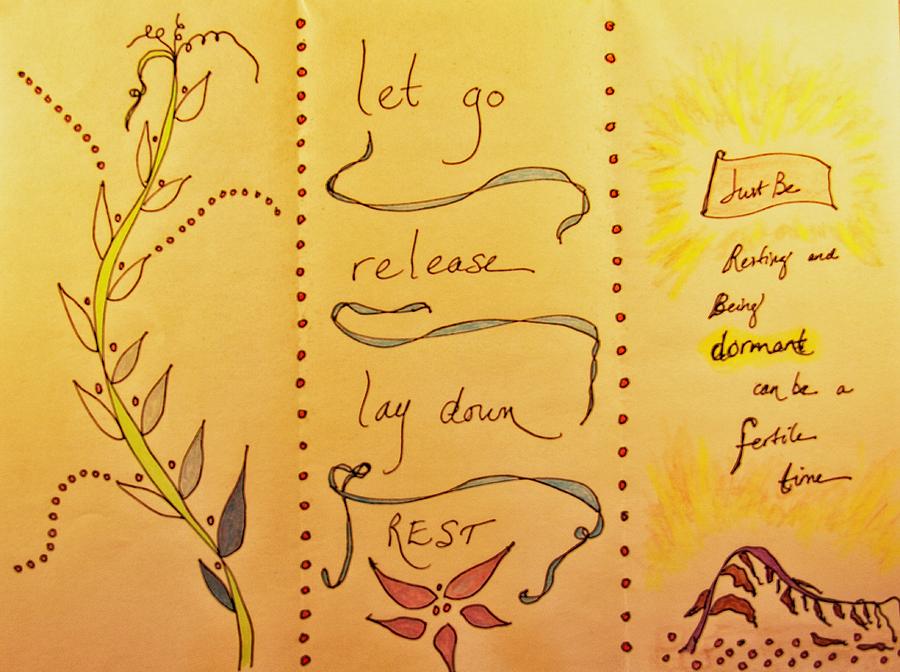 let go
release
lay down
REST
Just Be
Resting and
Being
dormant
can be a
fertile
time